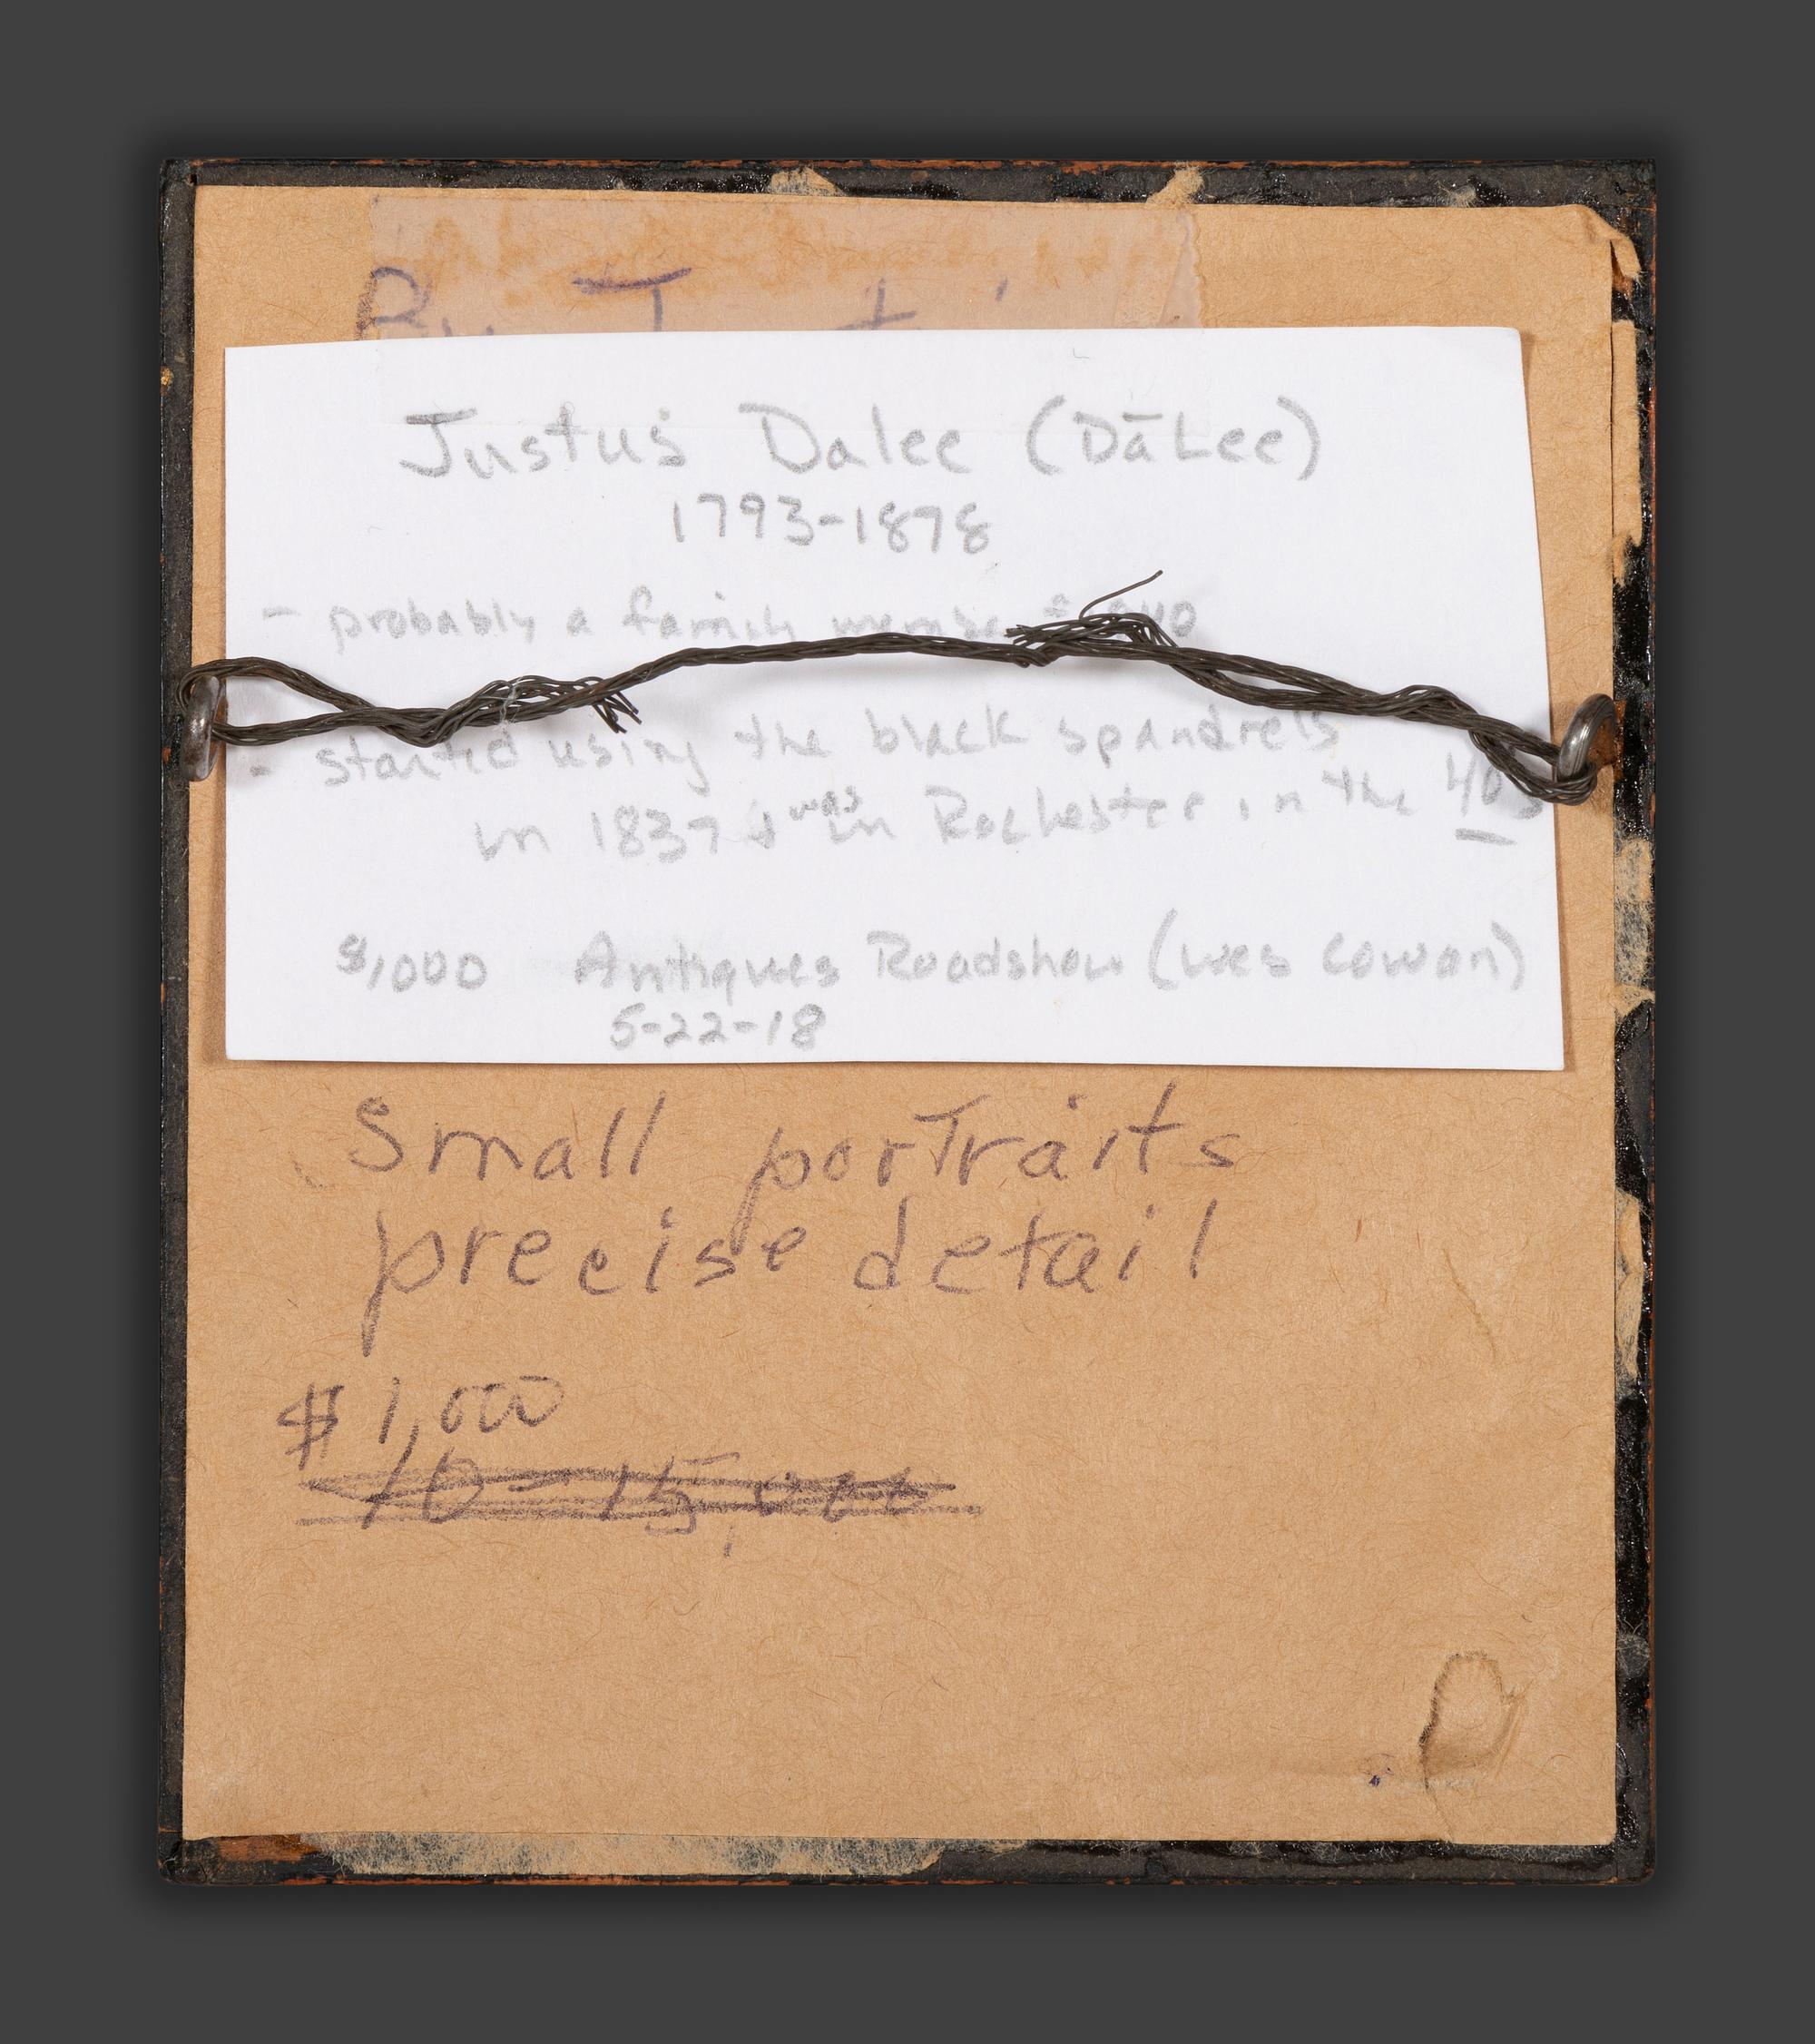 By
Justus Dalee (DāLee)
1793-1878
- probably a family member
- started using the black spandrels
in 1837 & was in Rochester in the 40s
$1,000 Antiques Roadshow (Wes Cowan)
5-22-18
Small portraits
precise detail
$ 1,000
10 - 15,000